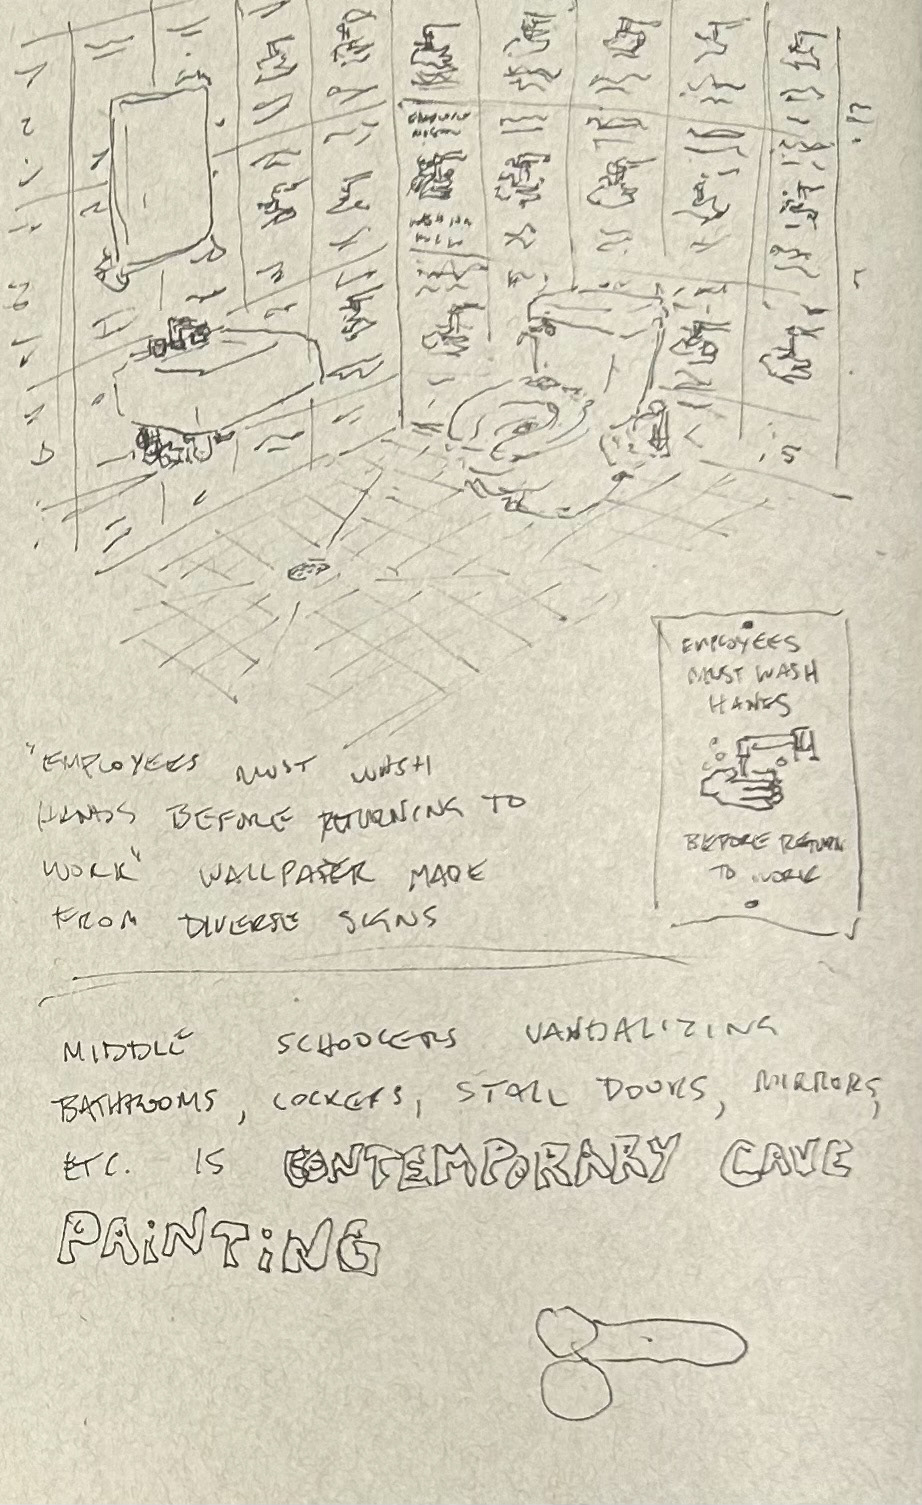 EMPLOYEES
MUST WASH
HANDS
BEFORE RETURN
TO WORK
"EMPLOYEES MUST WASH
HANDS BEFORE RETURNING TO
WORK" WALLPAPER MADE
FROM DIVERSE SIGNS
MIDDLE SCHOOLERS VANDALIZING
BATHROOMS, LOCKERS, STALL DOORS, MIRRORS,
ETC. IS CONTEMPORARY CAVE
PAINTING